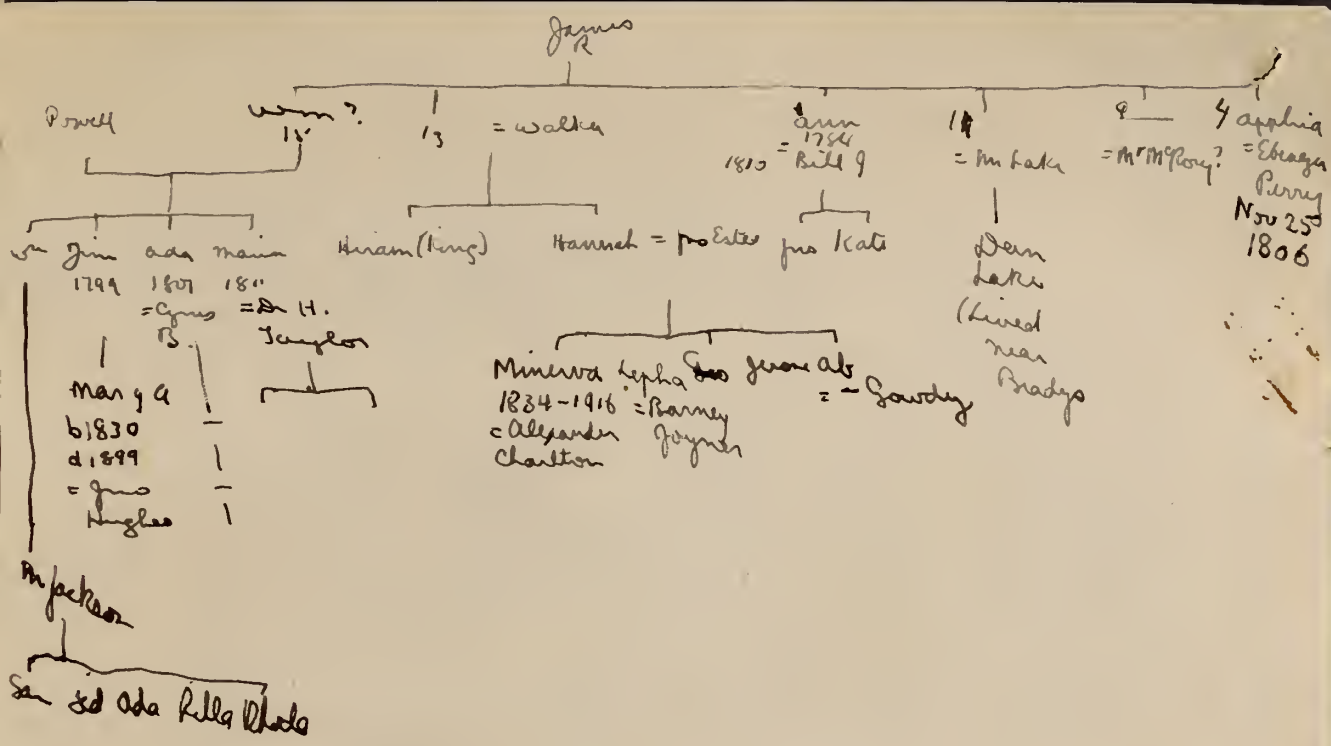 James
R
Powell
13 = Walker
Ann
1784
1810 = Bill J
= Mr Lake
9 = Mr McRory?
4 Apphia
= Ebenezer
Perry
Nov 25
1806
Jim
1799
Ada
1801
= Cyrus
B.
Maria
181
= Dr H.
Hiram (King)
Hannah = Jno Estes
Jno Kate
Dean
Lake
(Lived
near
Bradys
Mary A
b1830
d1899
= Jno
Hughes
Minerva
1834-1916
Alexander
Charlton
Lepha
= Barney
Joyner
Jerome
= - Gowdy
M Jackson
Sam Ed Ada Rilla Rhoda